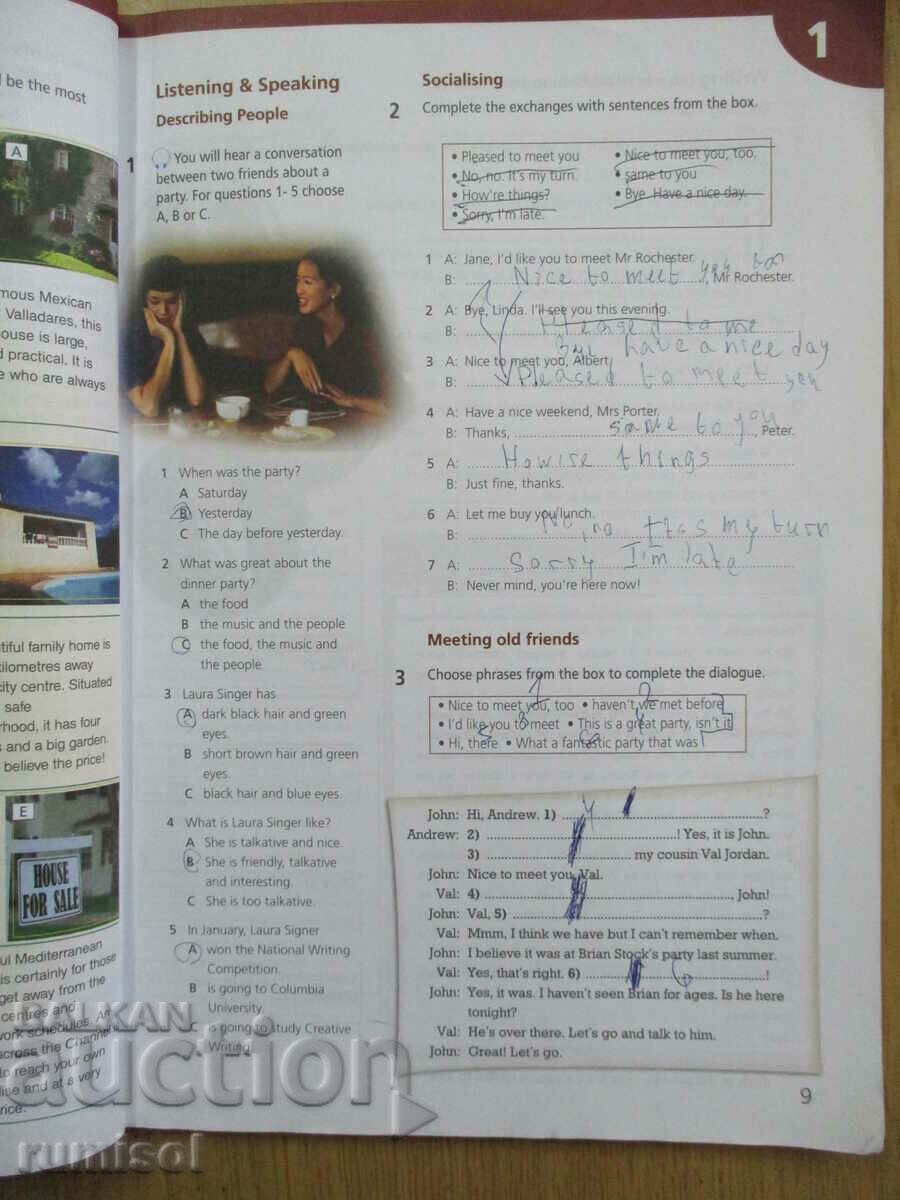 l be the most
A
mous Mexican
Valladares, this
ouse is large,
d practical. It is
e who are always
tiful family home is
kilometres away
city centre. Situated
safe
rhood, it has four
s and a big garden.
believe the price!
E
HOUSE
FOR SALE
ul Mediterranean
is certainly for those
get away from the
centres and
work schedules. An
across the Channel
to reach your own
lise and at a very
rice.
1
Listening & Speaking
Describing People
1
You will hear a conversation
between two friends about a
party. For questions 1- 5 choose
A, B or C.
1 When was the party?
A Saturday
B Yesterday
C The day before yesterday.
2 What was great about the
dinner party?
A the food
B the music and the people
C the food, the music and
the people
3 Laura Singer has
A dark black hair and green
eyes.
B short brown hair and green
eyes.
C black hair and blue eyes.
4 What is Laura Singer like?
A She is talkative and nice.
B She is friendly, talkative
and interesting.
C She is too talkative.
5 In January, Laura Signer
A won the National Writing
Competition.
B is going to Columbia
University.
C is going to study Creative
Writing.
Socialising
2 Complete the exchanges with sentences from the box.
• Pleased to meet you
• No, no. It's my turn.
• How're things?
• Sorry, I'm late.
• Nice to meet you, too.
• same to you
• Bye. Have a nice day.
1 A: Jane, I'd like you to meet Mr Rochester.
B: Nice to meet you too, Mr Rochester.
2 A: Bye, Linda. I'll see you this evening.
B: Pleased to me
have a nice day
3 A: Nice to meet you, Albert.
B: Pleased to meet you
4 A: Have a nice weekend, Mrs Porter.
B: Thanks, same to you, Peter.
5 A: How're things
B: Just fine, thanks.
6 A: Let me buy you lunch.
B: No, no Its my turn
7 A: Sorry I'm late
B: Never mind, you're here now!
Meeting old friends
3 Choose phrases from the box to complete the dialogue.
1 2
• Nice to meet you, too • haven't we met before
3 4
• I'd like you to meet • This is a great party, isn't it
5 6
• Hi, there • What a fantastic party that was
John: Hi, Andrew. 1) ?
Andrew: 2) ! Yes, it is John.
3) my cousin Val Jordan.
John: Nice to meet you, Val.
Val: 4) , John!
John: Val, 5) ?
Val: Mmm, I think we have but I can't remember when.
John: I believe it was at Brian Stock's party last summer.
Val: Yes, that's right. 6) !
John: Yes, it was. I haven't seen Brian for ages. Is he here
tonight?
Val: He's over there. Let's go and talk to him.
John: Great! Let's go.
9
BALKAN
auction
rumisol